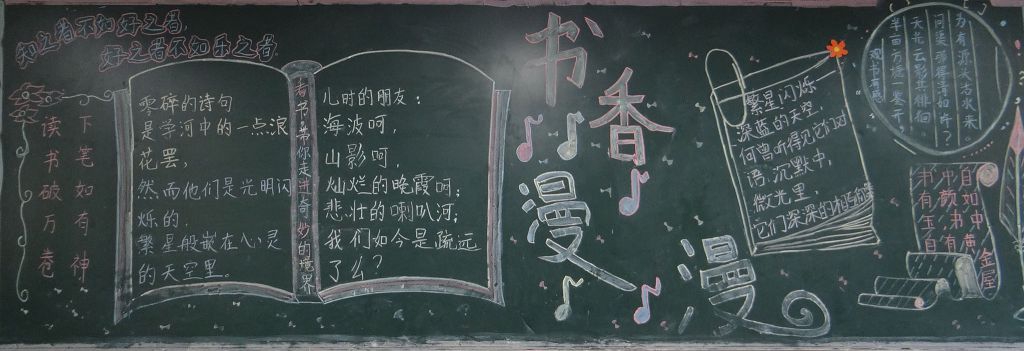 知之者不如好之者,
好之者不如乐之者,
读书破万卷
下笔如有神
零碎的诗句
是学河中的一点浪
花罢,
然而他们是光明闪
烁的.
繁星般嵌在心灵
的天空里。
看书带你走进奇妙的境界
儿时的朋友:
海波呵,
山影呵,
灿烂的晚霞呵;
悲壮的喇叭河;
我们如今是疏远
了么?
书香漫漫
繁星闪烁
深蓝的天空,
何曾听得见它们对
语,沉默中,
微光里,
它们深深的
为有源头活水来
问渠那得清如许?
天光云影共徘徊
半亩方塘一鉴开,
观书有感
书中自有颜如玉
书中自有黄金屋